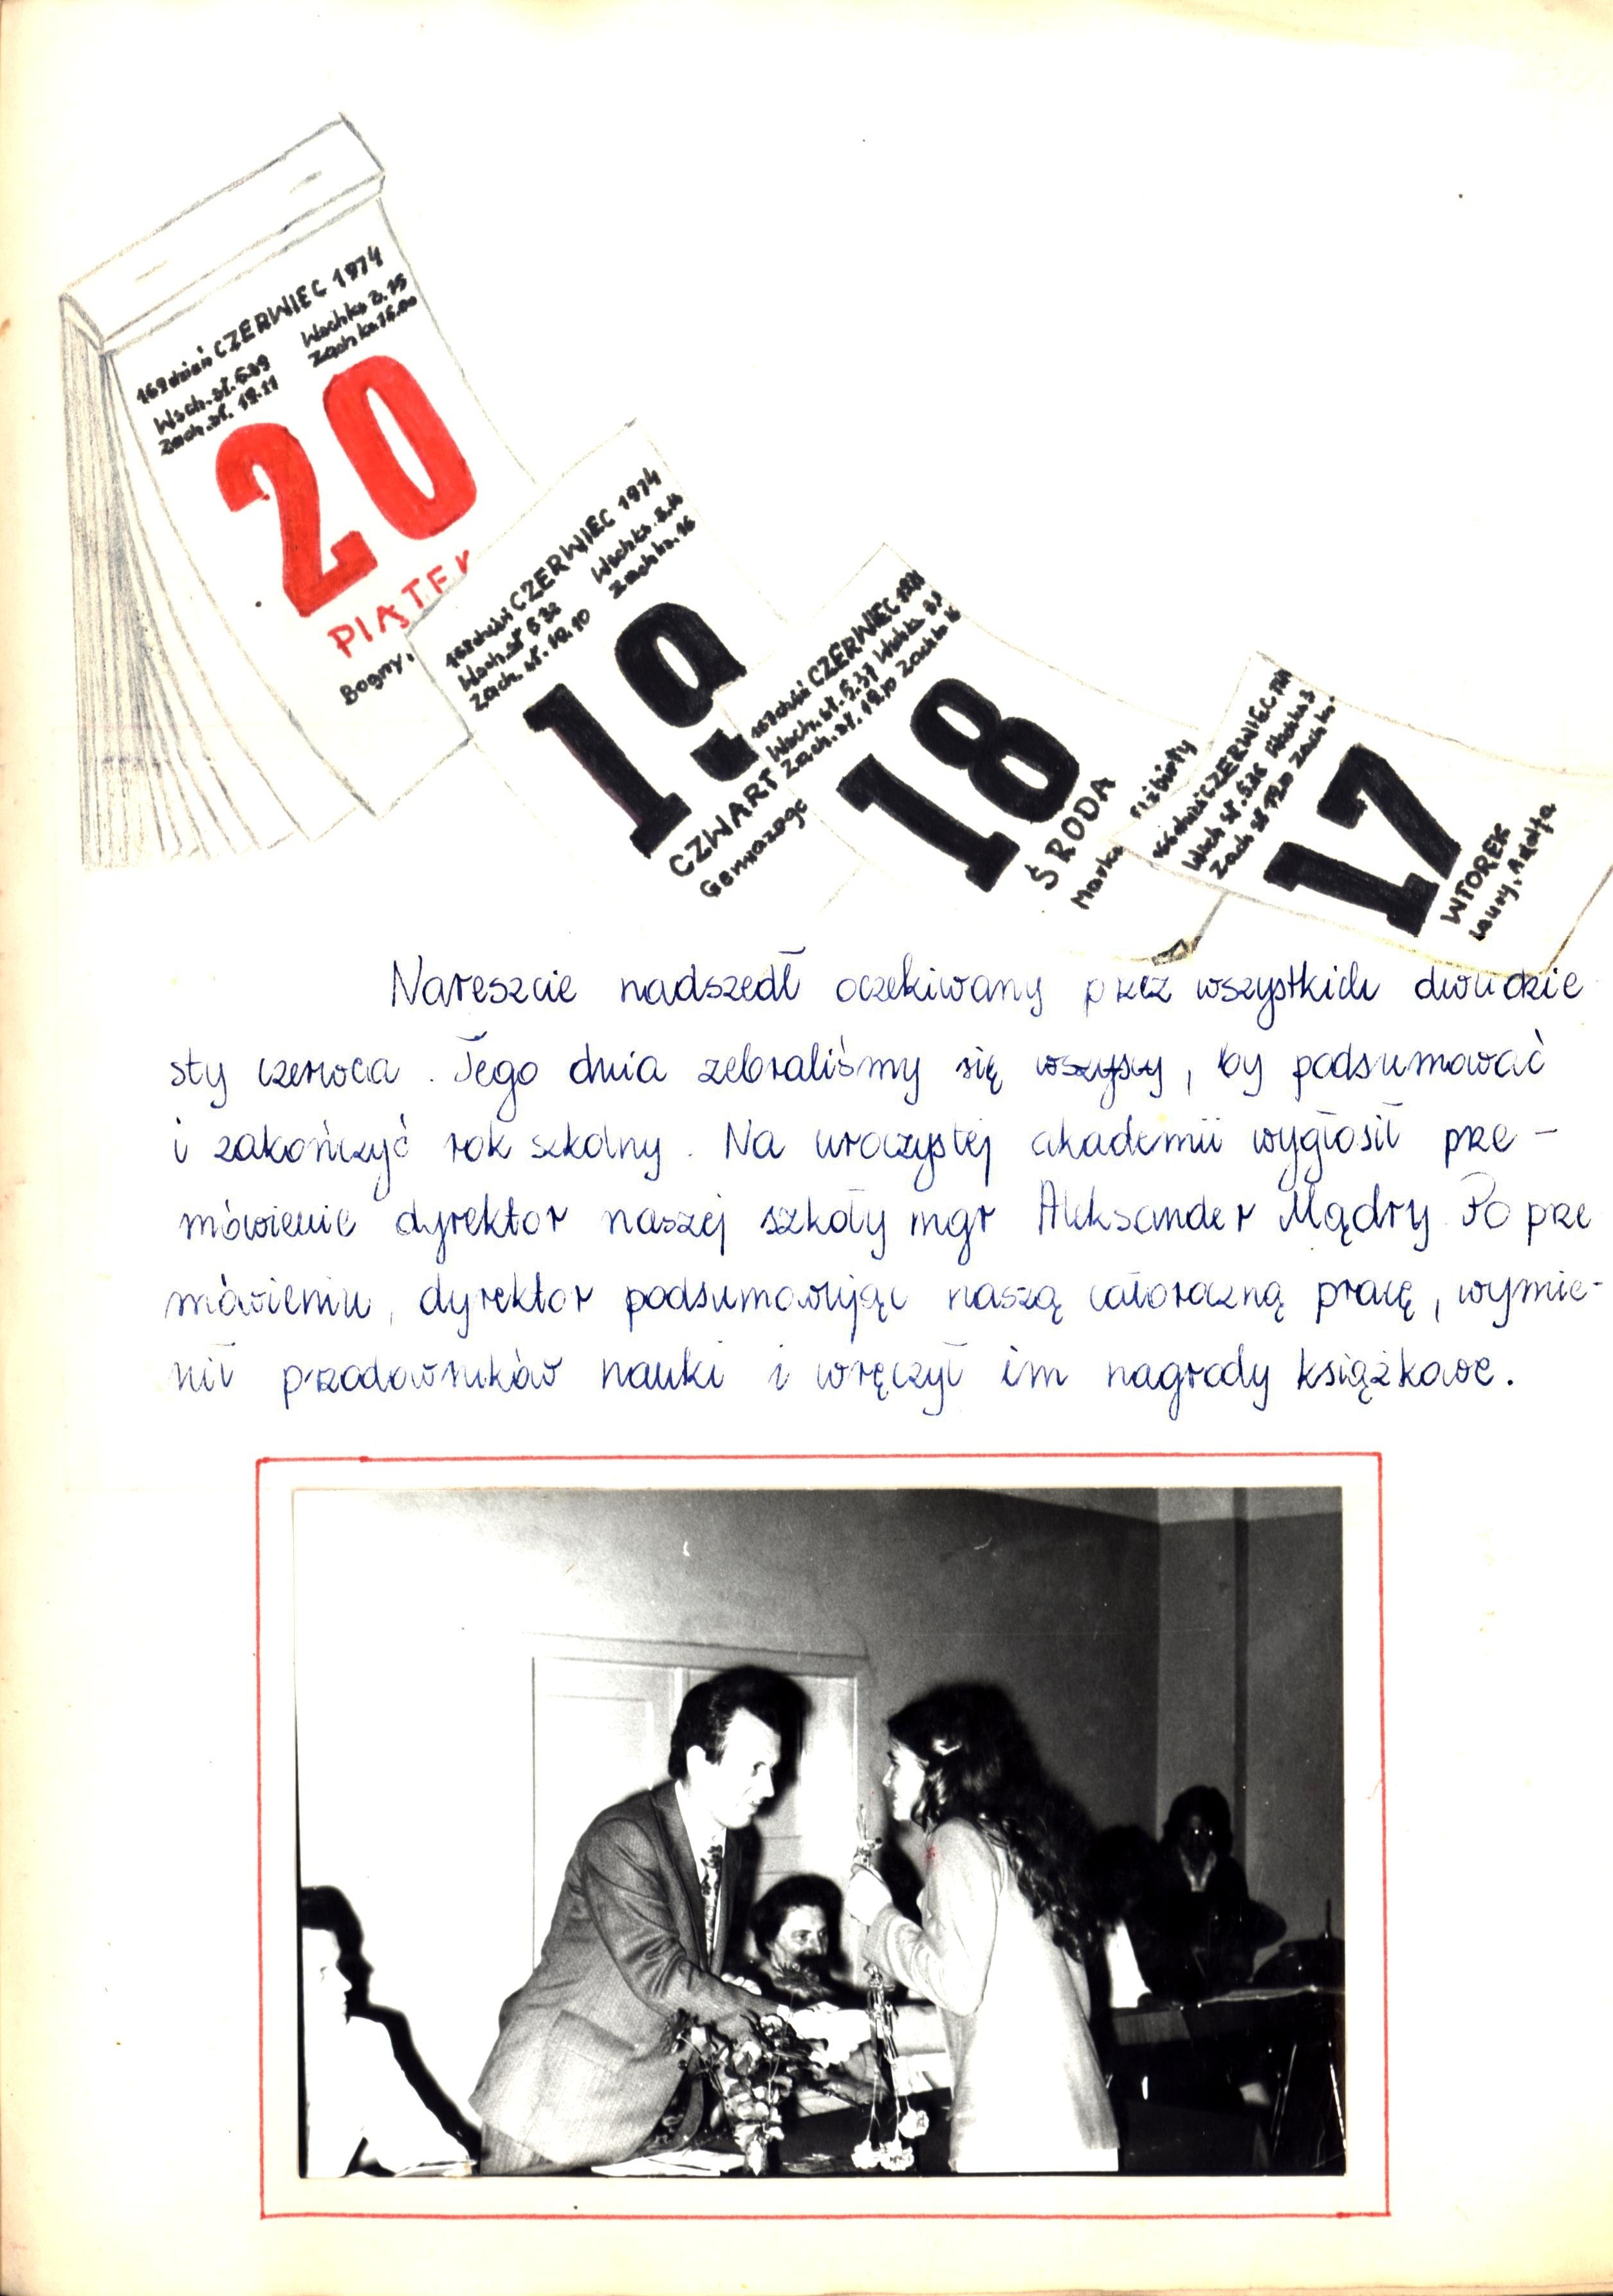 169 dzień CZERWIEC 1974
Wsch. sł. 5.39 Wsch ks 3.15
Zach. sł. 19.11 Zach ks 16.00
20
PIĄTEK
Bogny,
168 dzień CZERWIEC 1974
Wsch. sł 5 38 Wsch ks.
Zach. sł. 19.10 Zach ks. 16
19
CZWART
Gerwazego
167 dzień CZERWIEC
Wsch. sł. 5.37 Wsch ks
Zach. sł. 19.10 Zach ks
18
ŚRODA
Marka Elżbiety
166 dzień CZERWIEC
Wsch sł. 5.36 Wsch ks 3
Zach sł 19.10 Zach ks
17
WTOREK
Laury, Adolfa
Nareszcie nadszedł oczekiwany przez wszystkich dwudzie-
sty czerwca. Tego dnia zebraliśmy się wszyscy, by podsumować
i zakończyć rok szkolny. Na uroczystej akademii wygłosił prze-
mówienie dyrektor naszej szkoły mgr Aleksander Mądry. Po prze
mówieniu, dyrektor podsumowując naszą całoroczną pracę, wymie-
nił przodowników nauki i wręczył im nagrody książkowe.